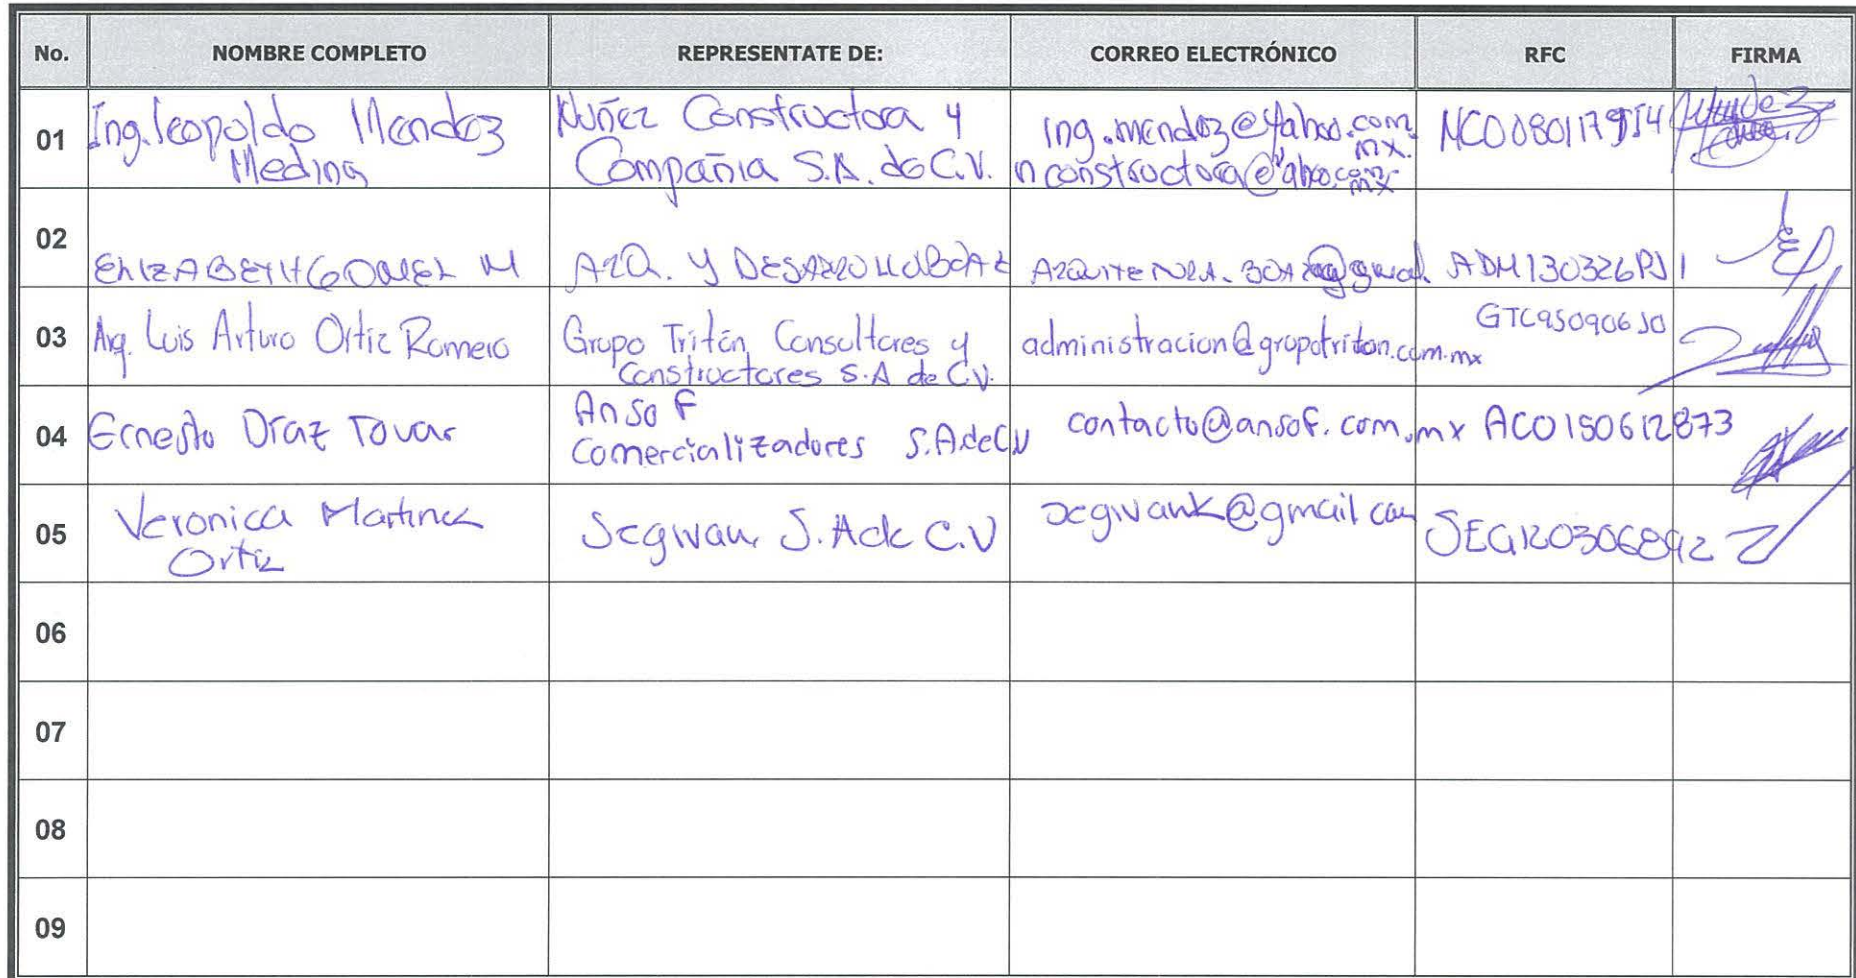 No. NOMBRE COMPLETO REPRESENTATE DE: CORREO ELECTRÓNICO RFC FIRMA
01 Ing. Leopoldo Mendoz Medina
Nuñez Constructora y
Compañia S.A. de C.V.
ing.mendoz@yahoo.com.mx.
nconstructora@yahoo.com.mx
NCO080117
02 ELIZABETH GOMEZ M
ARQ. Y DESARROLLO BOAZ
ADM130326PJ1
03 Arq. Luis Arturo Ortiz Romero
Grupo Tritón Consultores y
Constructores S.A de C.V.
administracion@grupotriton.com.mx
GTC950906
04 Ernesto Díaz Tovar
Ansof
Comercializadores S.A de C.V
contacto@ansof.com.mx
ACO150612873
05 Veronica Martinez
Ortiz
S.A de C.V
segivank@gmail.com
SEG1203068
06
07
08
09